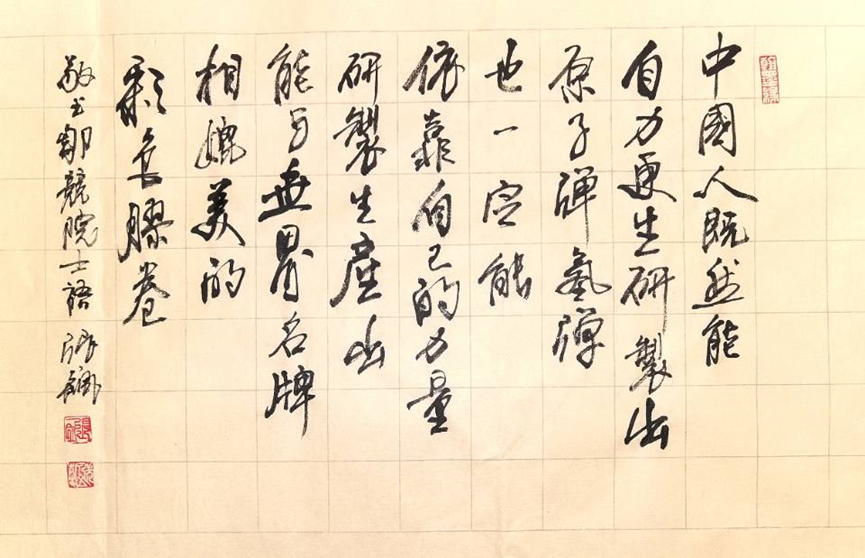 中國人既然能
自力更生研製出
原子弹氢彈
也一定能
依靠自己的力量
研製生產出
能与世界名牌
相媲美的
彩色膠卷
敬书鄒競院士語 張